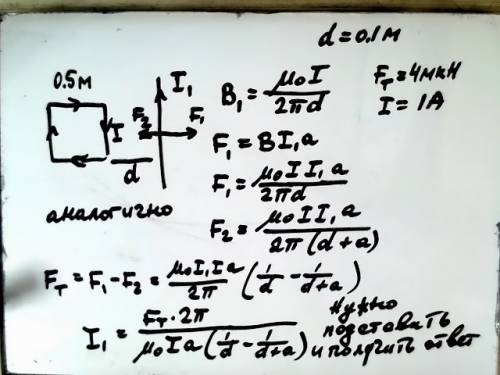 d=0.1м
0.5м
I₁
B₁ = μ₀I / 2πd
F_т = 4мкН
I = 1A
F₂
F₁
I
F₁ = BI₁a
d
F₁ = μ₀ I I₁ a / 2πd
аналогично
F₂ = μ₀ I I₁ a / 2π (d+a)
F_т = F₁ - F₂ = μ₀I₁Ia / 2π (1/d - 1/d+a)
I₁ = F_т·2π / μ₀Ia(1/d - 1/d+a)
нужно
подставить
и получить ответ